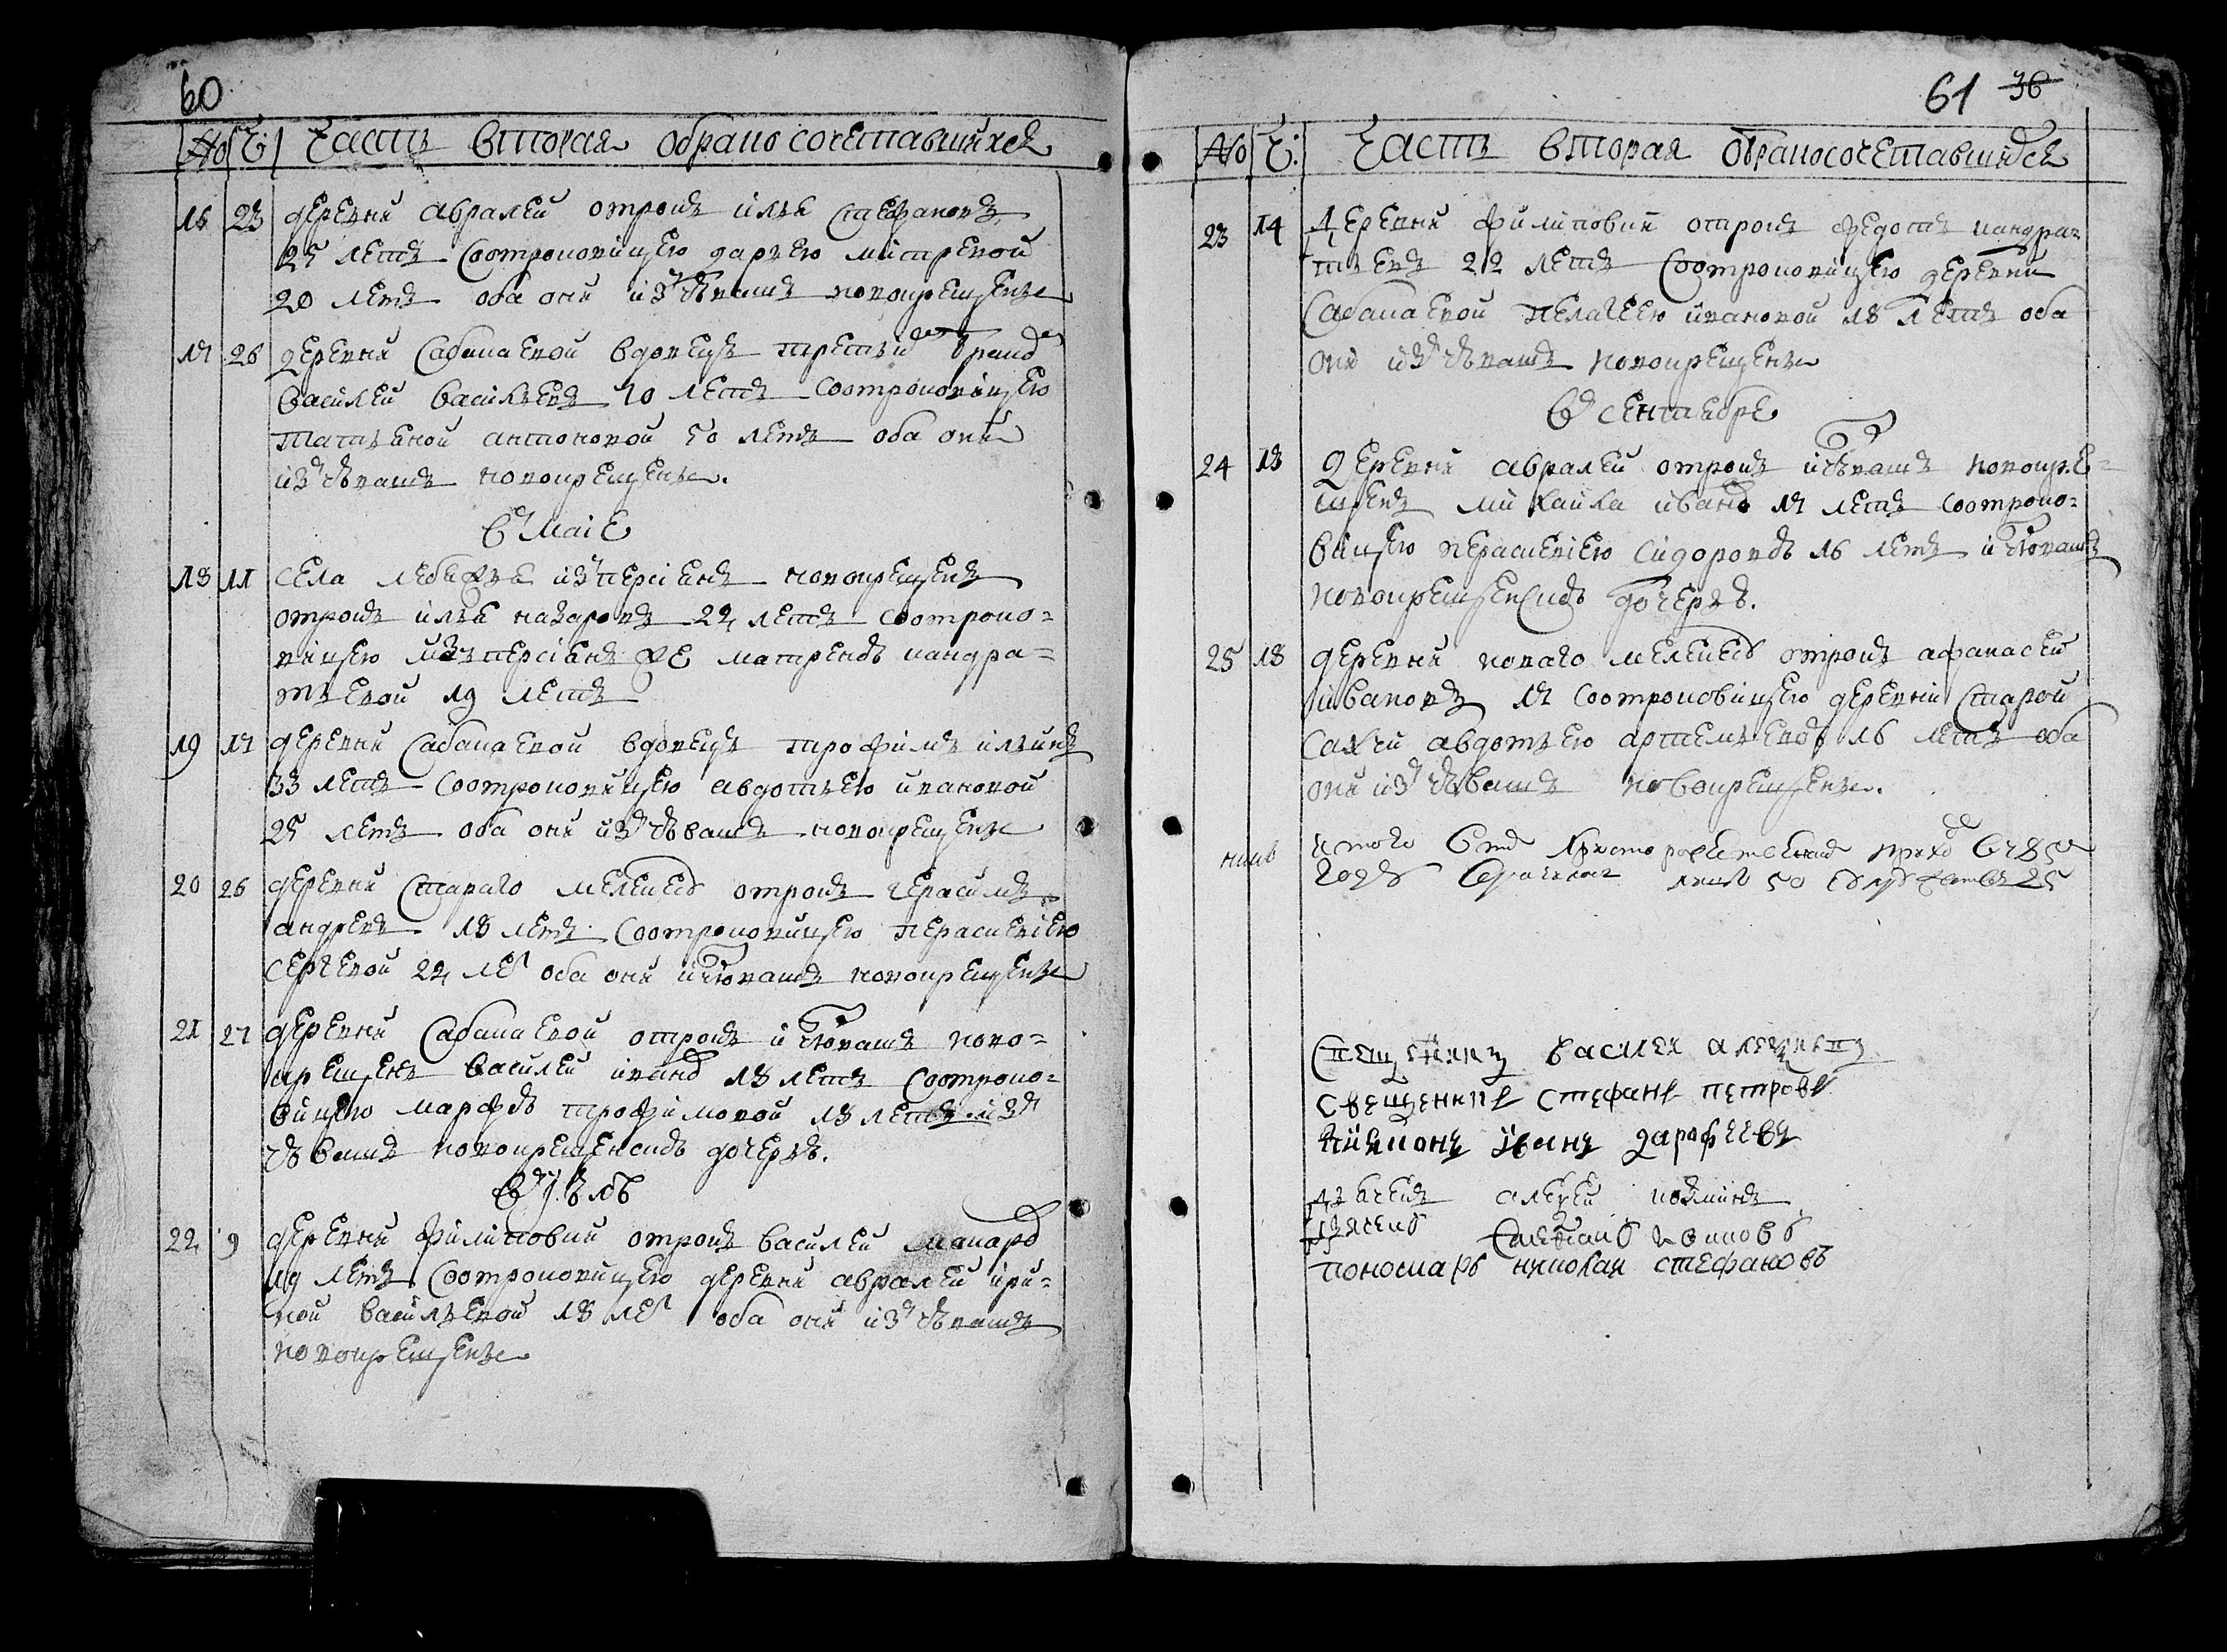 60
№ Ч: Часть вторая обрако сочетавшихся
16 23 деревни авралей отрокъ илья стефановъ
25 летъ соотроковицею дарьею митревой
20 летъ оба они изъ чювашъ новокрещены
17 26 деревни сабанаевой вдовецъ третьи браком
василей васильевъ 70 летъ соотроковицею
татьяной антоновой 50 летъ оба они
изъ чювашъ новокрещены.
въ маiе
18 11 села изъ персiянъ новокрещенъ
отрокъ илья назаровъ 22 летъ соотроко=
вицею изъ персiянъ же матреною кандра=
тьевой 19 летъ
19 17 деревни сабанаевой вдовецъ трофимъ ильинъ
33 летъ соотроковицею авдотьею ивановой
25 летъ оба они изъ чювашъ новокрещены
20 26 деревни стараго мелекесу отрокъ герасимъ
андреевъ 18 летъ соотроковицею парасковiею
сергевой 22 ле оба они ис чювашъ новокрещены
21 27 деревни сабанаевой отрокъ ис чювашъ ново=
крещенъ василей иванов 18 летъ соотроко=
вицею марфою трофимовой 18 летъ изъ
чювашъ новокрещенскою дочерью.
въ июле
22 9 деревни филиповки отрокъ василей макаров
19 летъ соотроковицею деревни авралей ири=
ной васильевой 18 ле оба они изъ чювашъ
новокрещены
61 36
№ Ч: Часть вторая обракосочетавшихся
23 14 деревни филиповки отрокъ федотъ кандра=
тьевъ 22 летъ соотроковицею деревни
сабанаевой пелагеею ивановой 18 летъ оба
они изъ чювашъ новокрещены
въ сентебре
24 13 деревни авралей отрокъ ис чювашъ новокре=
щенъ михаила иванов 17 летъ соотроко=
вицею парасковiею сидоровою 16 летъ ис чювашъ
новокрещенскою дочерью.
25 18 деревни новаго мелекесу отрокъ афанасей
ивановъ 17 соотроковицею деревни старой
сахчи авдотьею артемьевою 16 летъ оба
они изъ чювашъ новокрещены.
итого в христорождественском приходе в 785
году 50 25
священникъ василей алексеевъ
священникъ стефанъ петровъ
диаконъ иванъ дарофеевъ
дьячекъ алексей козминъ
дьячекъ
пономарь николай стефановъ